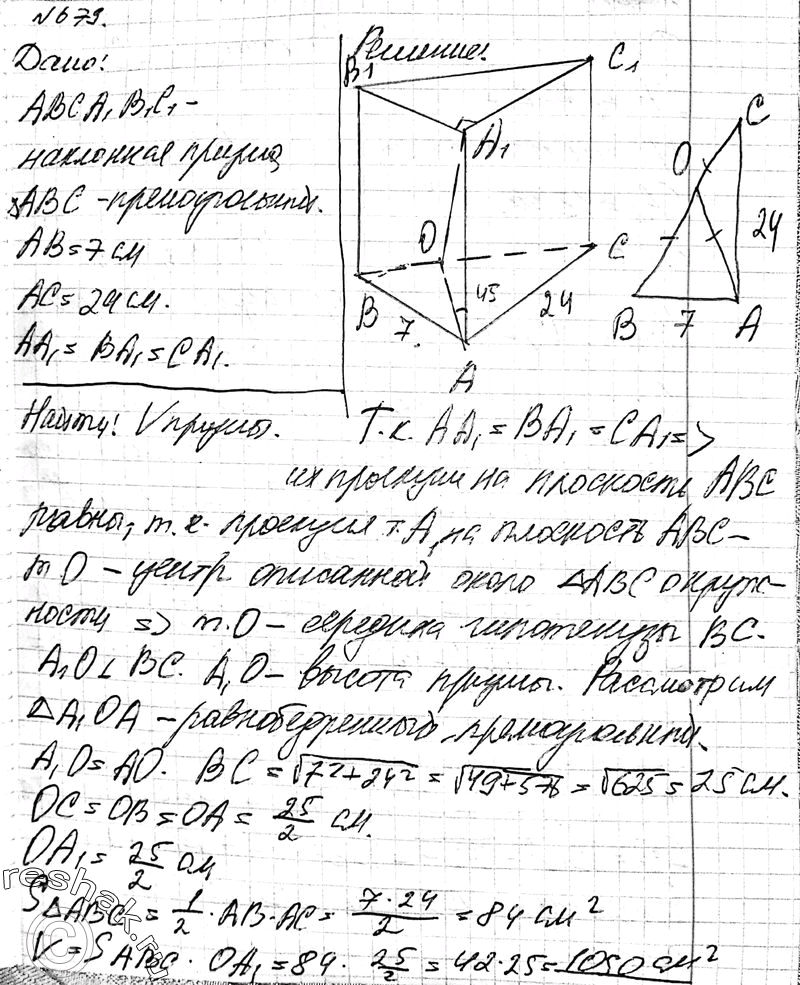 №679.
Дано:
ABCA₁B₁C₁ –
наклонная призма
△ABC – прямоугольный.
AB = 7 см
AC = 24 см.
AA₁ = BA₁ = CA₁.
Найти: V призмы.
Решение:
B1
C₁
A₁
O
C
B
45
24
7.
A
C
O
24
B
7
A
Т.к. AA₁ = BA₁ = CA₁ =>
их проекции на плоскость ABC
равны, т.к. проекция т.A₁ на плоскость ABC –
т.O – центр описанной около △ABC окруж-
ности => т.O – середина гипотенузы BC.
A₁O ⊥ BC. A₁O – высота призмы. Рассмотрим
△A₁OA – равнобедренный, прямоугольный.
A₁O = AO. BC = √7²+24² = √49+576 = √625 = 25 см.
OC = OB = OA = 25/2 см.
OA₁ = 25/2 см
S△ABC = 1/2 · AB · AC = 7·24/2 = 84 см²
V = S ABC · OA₁ = 84 · 25/2 = 42·25 = 1050 см²
reshak.ru
©